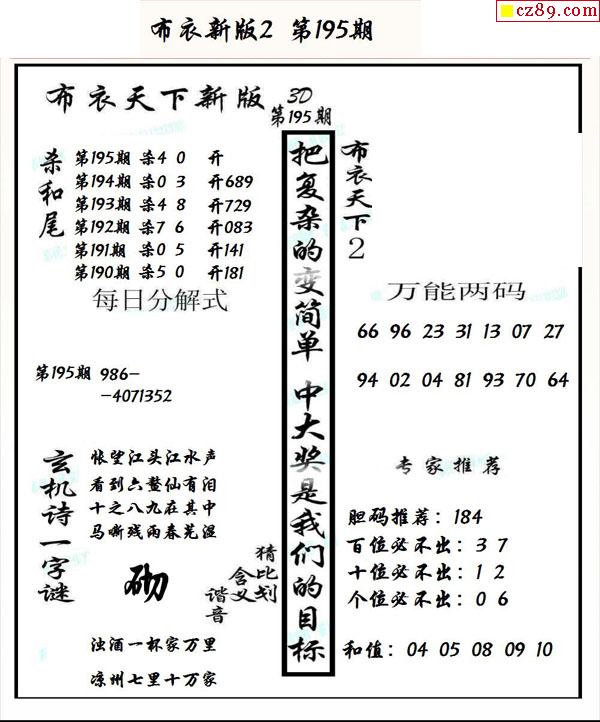 cz89.com
布衣新版2 第195期
布衣天下新版 3D
第195期
杀和尾
第195期 杀4 0 开
第194期 杀0 3 开689
第193期 杀4 8 开729
第192期 杀7 6 开083
第191期 杀0 5 开141
第190期 杀5 0 开181
每日分解式
第195期 986-
-4071352
玄机诗一字谜
怅望江头江水声
看到六鳌仙有泪
十之八九在其中
马嘶残雨春芜湿
砌
猜比划
含义
谐音
浊酒一杯家万里
凉州七里十万家
把复杂的变简单 中大奖是我们的目标
布衣天下2
万能两码
66 96 23 31 13 07 27
94 02 04 81 93 70 64
专家推荐
胆码推荐：184
百位必不出：3 7
十位必不出：1 2
个位必不出：0 6
和值：04 05 08 09 10